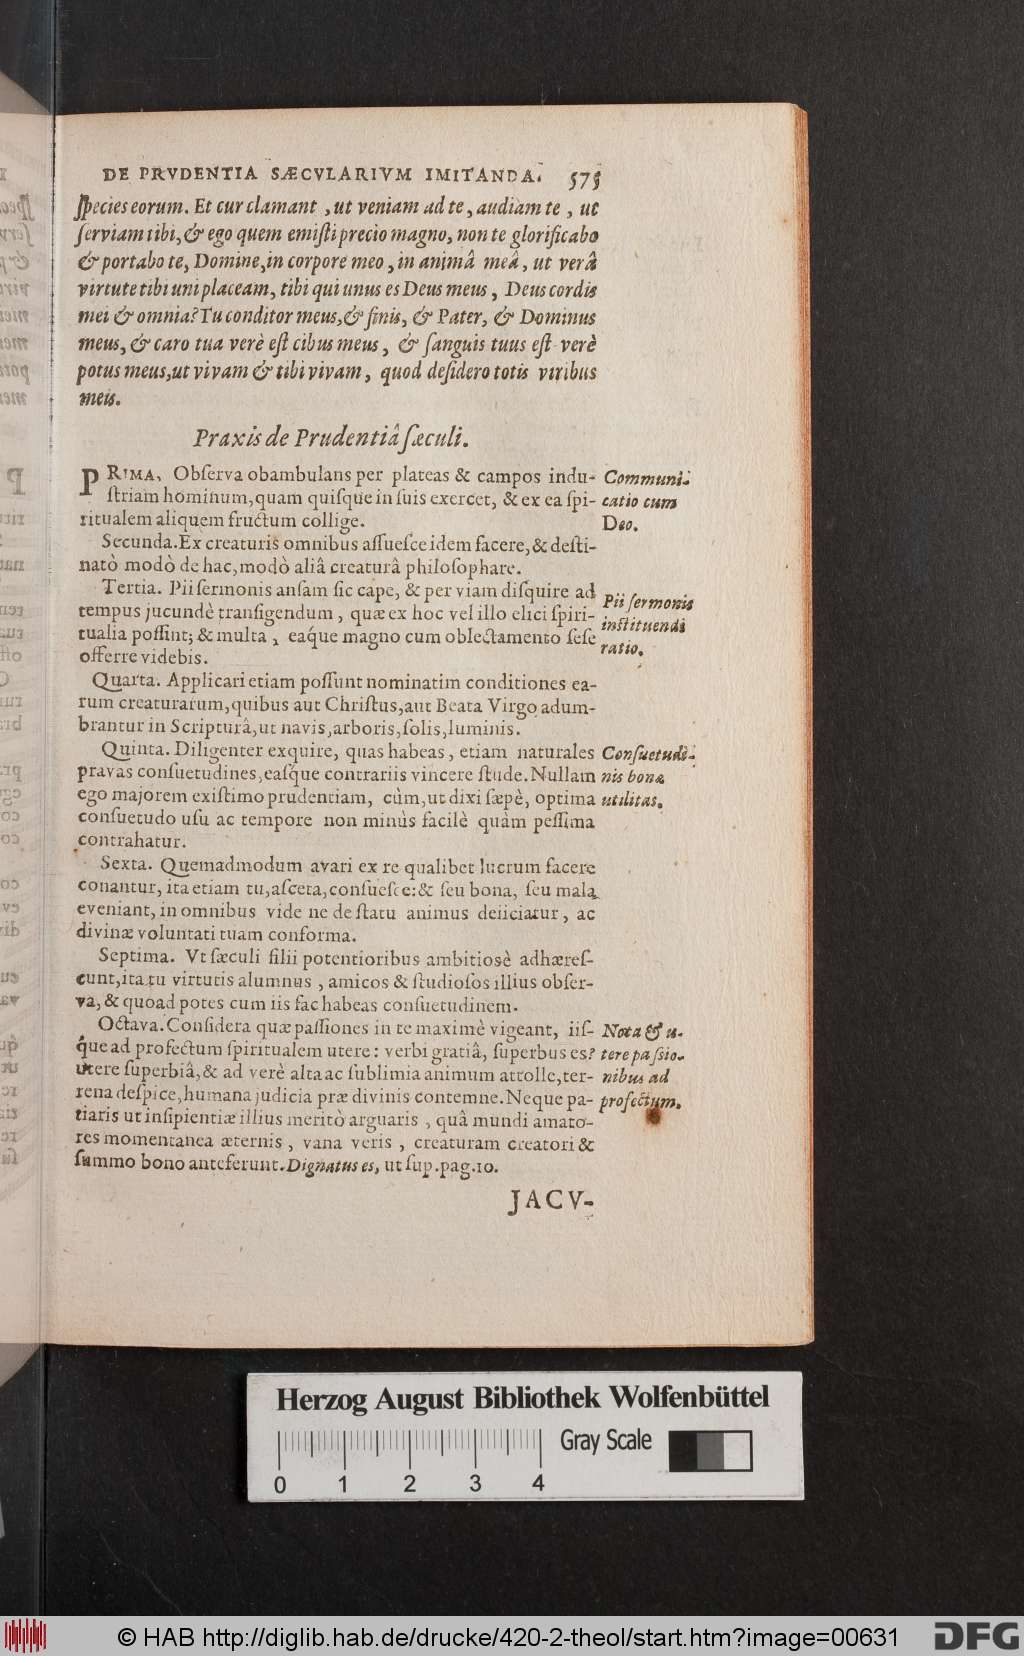 DE PRVDENTIA SÆCVLARIVM IMITANDA. 575
ſpecies eorum. Et cur clamant, ut veniam ad te, audiam te, ut
ſerviam tibi, & ego quem emiſti precio magno, non te glorificabo
& portabo te, Domine, in corpore meo, in animâ meâ, ut verâ
virtute tibi uni placeam, tibi qui unus es Deus meus, Deus cordis
mei & omnia? Tu conditor meus, & finis, & Pater, & Dominus
meus, & caro tua verè eſt cibus meus, & ſanguis tuus eſt verè
potus meus, ut vivam & tibi vivam, quod deſidero totis viribus
meis.
Praxis de Prudentiâ ſæculi.
PRIMA, Obſerva obambulans per plateas & campos indu-
ſtriam hominum, quam quiſque in ſuis exercet, & ex ea ſpi-
ritualem aliquem fructum collige.
Communi-
catio cum
Deo.
Secunda. Ex creaturis omnibus aſſueſce idem facere, & deſti-
natò modò de hac, modò aliâ creaturâ philoſophare.
Tertia. Pii ſermonis anſam ſic cape, & per viam diſquire ad
tempus jucundè tranſigendum, quæ ex hoc vel illo elici ſpiri-
tualia poſſint; & multa, eaq́ue magno cum oblectamento ſeſe
offerre videbis.
Pii ſermonis
inſtituendi
ratio.
Quarta. Applicari etiam poſſunt nominatim conditiones ea-
rum creaturarum, quibus aut Chriſtus, aut Beata Virgo adum-
brantur in Scripturâ, ut navis, arboris, ſolis, luminis.
Quinta. Diligenter exquire, quas habeas, etiam naturales
pravas conſuetudines, eaſque contrariis vincere ſtude. Nullam
ego majorem exiſtimo prudentiam, cùm, ut dixi ſæpè, optima
conſuetudo uſu ac tempore non minùs facilè quàm peſſima
contrahatur.
Conſuetudi-
nis bonæ
utilitas.
Sexta. Quemadmodum avari ex re qualibet lucrum facere
conantur, ita etiam tu, aſceta, conſueſce: & ſeu bona, ſeu mala
eveniant, in omnibus vide ne de ſtatu animus deiiciatur, ac
divinæ voluntati tuam conforma.
Septima. Vt ſæculi filii potentioribus ambitiosè adhæreſ-
cunt, ita tu virtutis alumnus, amicos & ſtudioſos illius obſer-
va, & quoad potes cum iis fac habeas conſuetudinem.
Octava. Conſidera quæ paſſiones in te maximè vigeant, iiſ-
q́ue ad profectum ſpiritualem utere: verbi gratiâ, ſuperbus es?
utere ſuperbiâ, & ad verè alta ac ſublimia animum attolle, ter-
rena deſpice, humana judicia præ divinis contemne. Neque pa-
tiaris ut inſipientiæ illius meritò arguaris, quâ mundi amato-
res momentanea æternis, vana veris, creaturam creatori &
ſummo bono anteferunt. Dignatus es, ut ſup. pag. 10.
Nota & u-
tere paſſio-
nibus ad
profectum.
JACV-
Herzog August Bibliothek Wolfenbüttel
Gray Scale
0 1 2 3 4
© HAB http://diglib.hab.de/drucke/420-2-theol/start.htm?image=00631
DFG